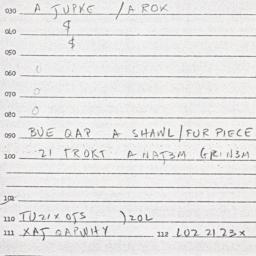 030 A JUPKE / A ROK
040 $
$
050
060
070 0
080 0
090 BUE QAP A SHAWL/FUR PIECE
100 21 TROKT A NAT3M GRIN3M
102
110 TU21X OJS )20L
111 XAT QAPWHY 112 LO2 2123X